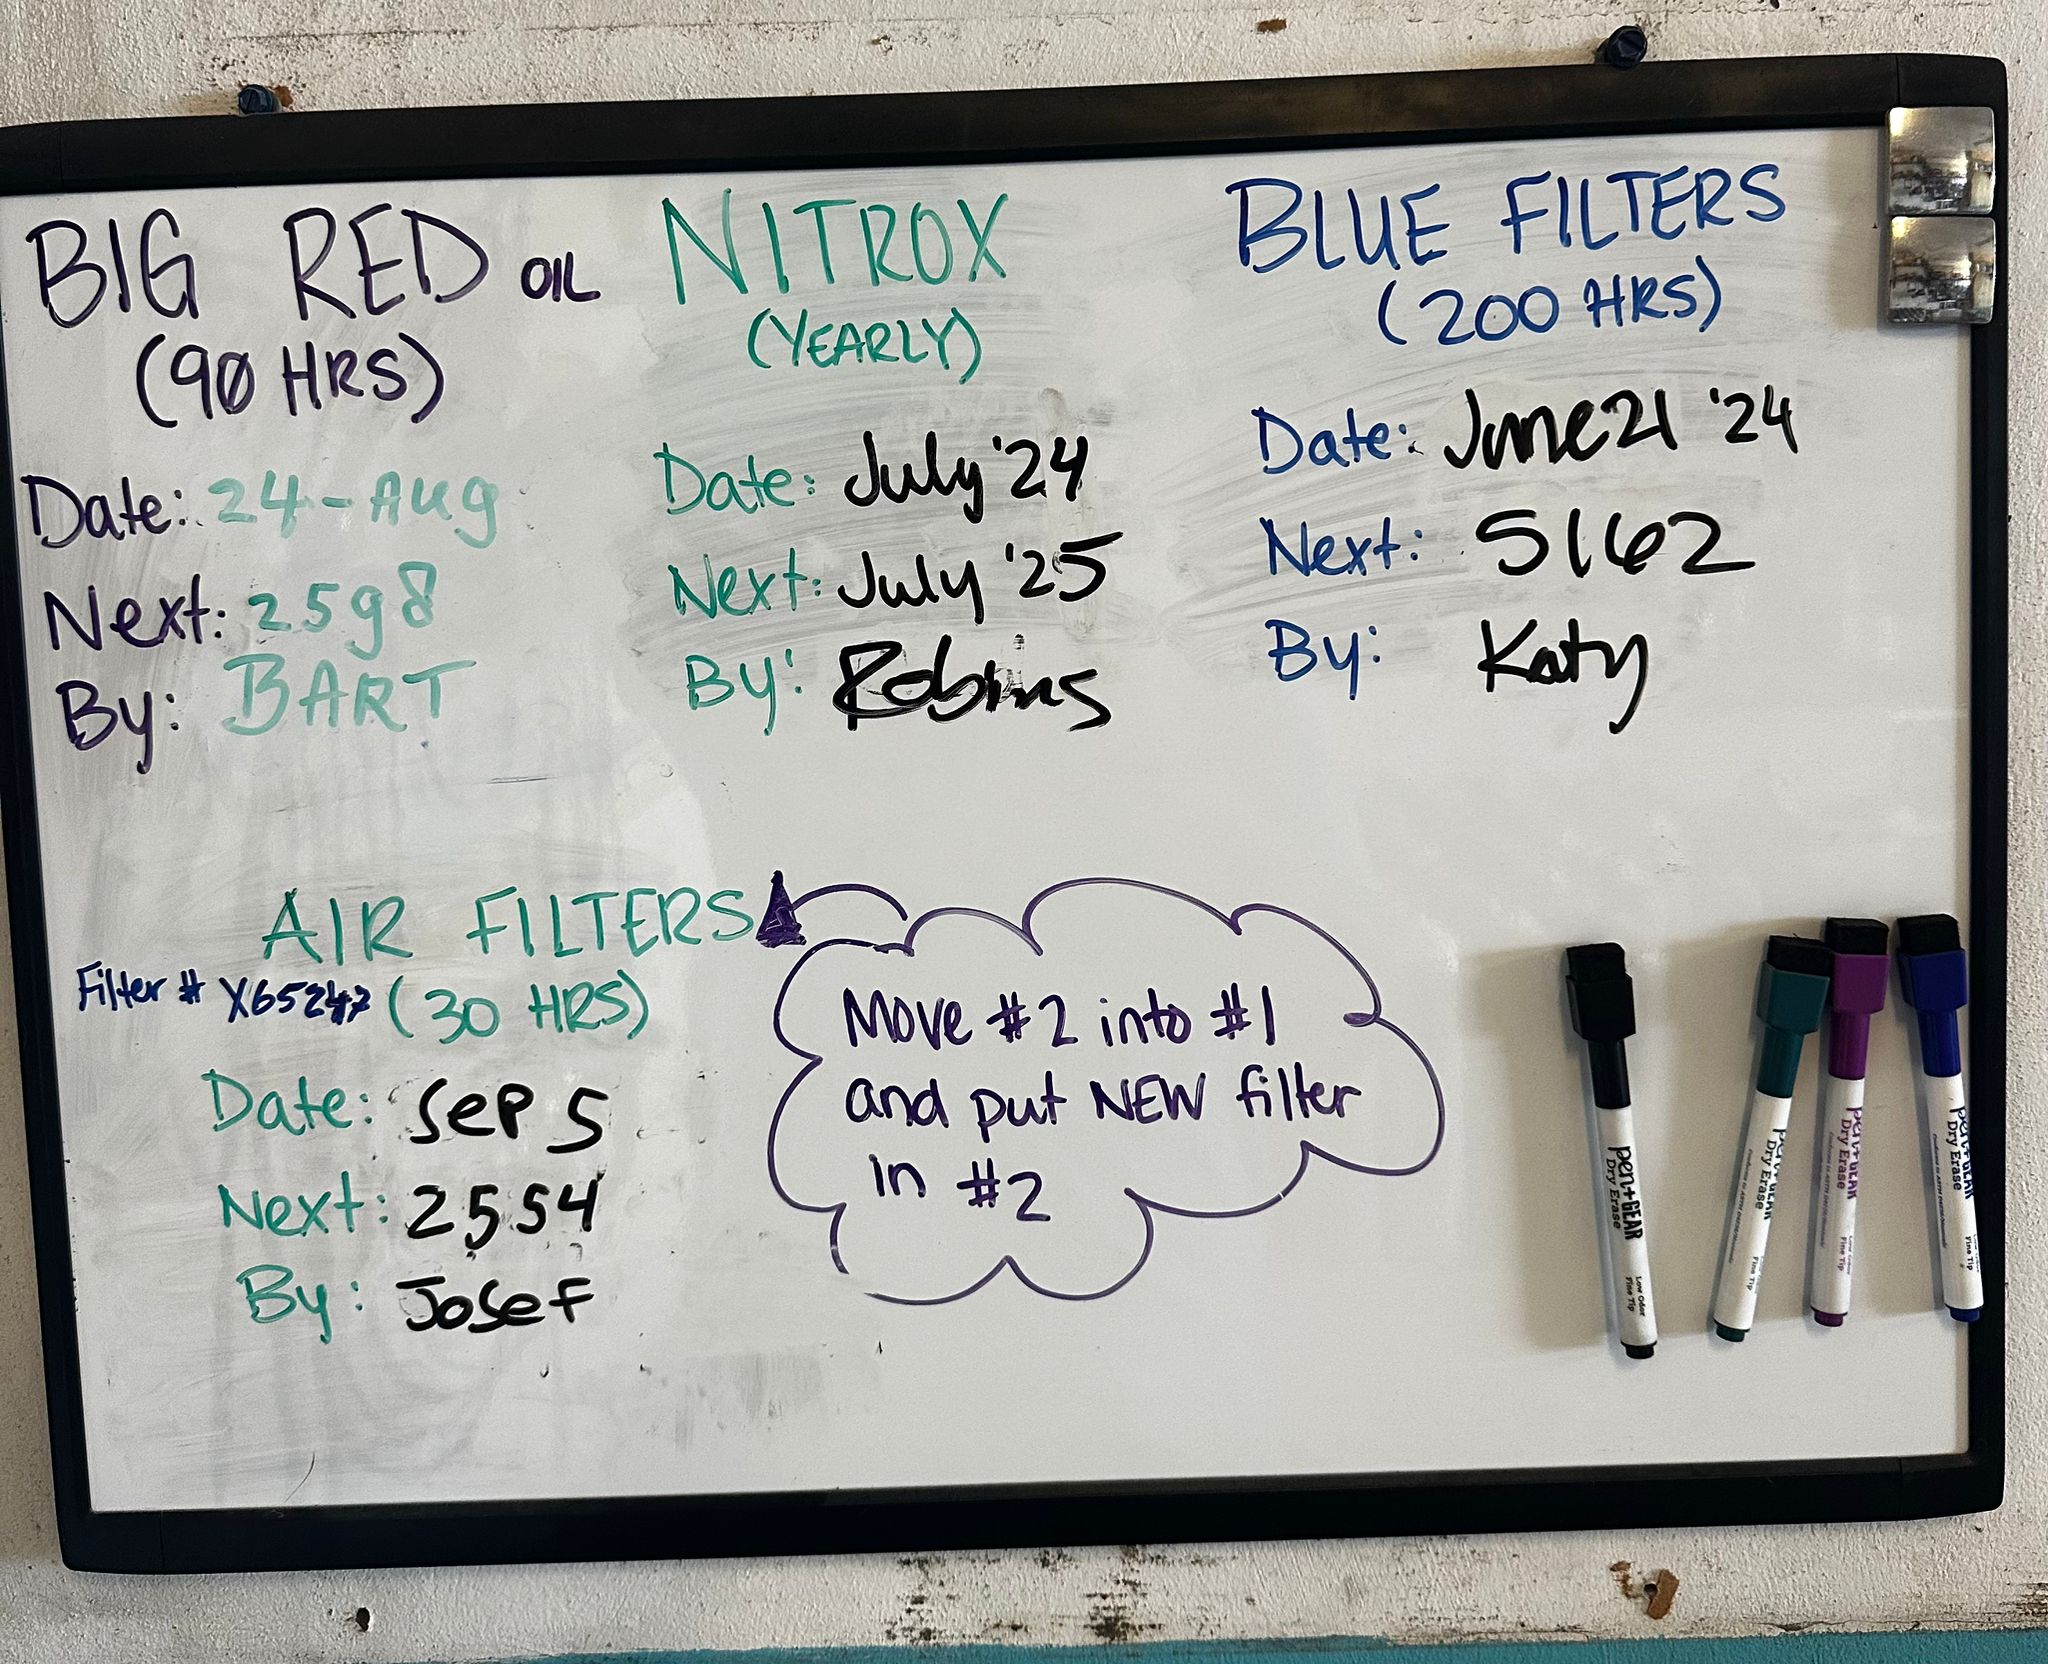 BIG RED OIL
(90 HRS)
Date: 24-Aug
Next: 2598
By: BART
NITROX
(YEARLY)
Date: July '24
Next: July '25
By: Robins
BLUE FILTERS
(200 HRS)
Date: June 21 '24
Next: 5162
By: Katy
AIR FILTERS
Filter # (30 HRS)
Date: Sep 5
Next: 2554
By: Josef
Move #2 into #1
and put NEW filter
in #2
pen+GEAR
Dry Erase
Low Odor
Fine Tip
pen+GEAR
Dry Erase
Fine Tip
pen+GEAR
Dry Erase
Low Odor
Fine Tip
pen+GEAR
Dry Erase
Fine Tip